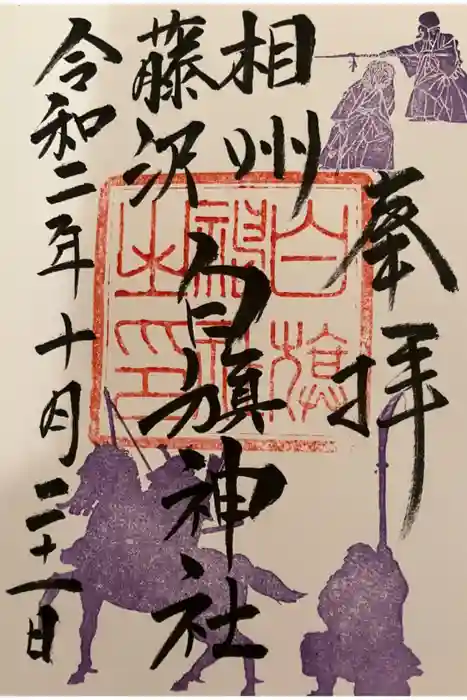 奉拝
相州
藤沢
白旗神社
令和二年十月二十一日
白旗
神社
之印